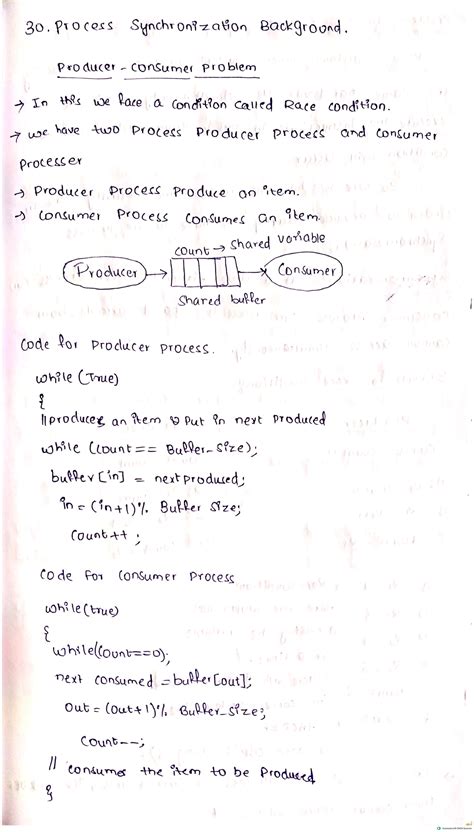 30. Process Synchronization Background.
Producer - Consumer Problem
→ In this we face a condition called Race condition.
→ we have two Process Producer process and consumer
Processer
→ Producer process produce an item.
→ Consumer Process consumes an item.
count → Shared variable
Producer
Consumer
Shared buffer
Code for Producer process.
while (True)
{
// produces an item & Put in next produced
while (Count == Buffer_size);
buffer [in] = next prodused;
in = (in+1) % Buffer size;
Count ++ ;
Code for Consumer Process
while (true)
{
while (Count==0);
next consumed = buffer [out];
Out = (Out+1) % Buffer_size;
Count--;
// consumes the item to be Produced
}